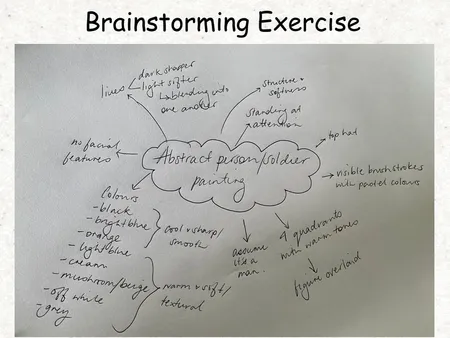 Brainstorming Exercise
lines
dark sharper
light softer
↳ blending into
one another
structure +
softness
standing at
attention
top hat
no facial
features
Abstract person/soldier
painting
visible brushstrokes
with pastel colours
Colours
- black
- bright blue
- orange
- light blue
- cream
- mushroom/beige
- off white
- grey
cool + sharp/
smooth
warm + soft/
textural
assume
it's a
man.
4 quadrants
with warm tones
figure overlaid